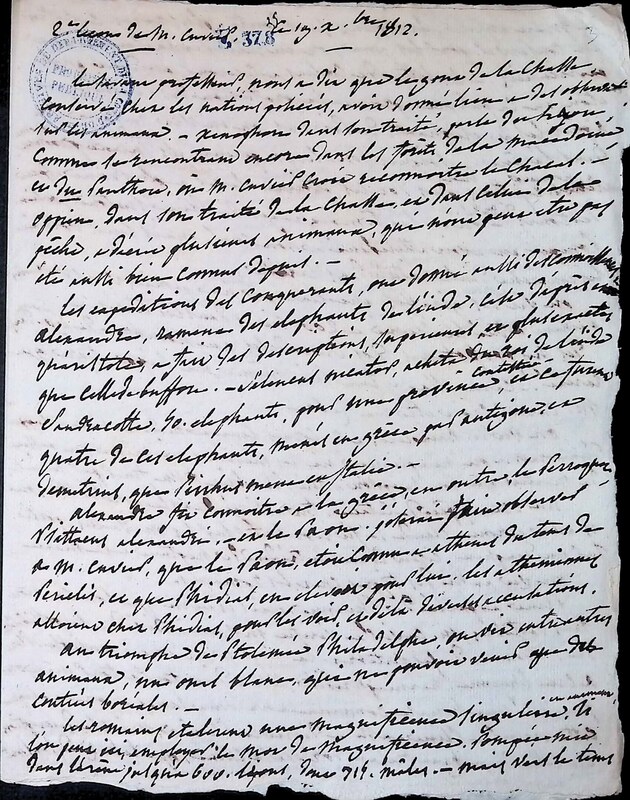 2e leçon de M. Cuvier le 19 Xbre 1812.
4 J 378
le même professeur, nous a dit que le gout de la chasse
conservé chez les nations policées, avoit donné lieu a des observat.
sur les animaux. – xenophon dans son traité, parle du
comme se rencontrant encore dans les forêts de la macedoine
et du Panthere, ou M. Cuvier croit reconnoitre le chacal. –
oppien, dans son traité de la chasse, et dans celui de la
pêche, a décrit plusieurs animaux, qui n'ont peut etre pas
été aussi bien connus depuis. –
Les expeditions des conquerants, ont donné aussi des connoissances
alexandre, ramena des elephants de l'inde, c'est d'après
qu'aristote, a fait des descriptions, superieures, et plus exactes
que celle de buffon. – Seleucus nicator, acheta du roi de l'inde
Sandracotte, 50. elephants, pour une province contestée, et ce furent
quatre de ces elephants, menés en grèce par antigone, et
demetrius, que Pirrhus mena en Italie. –
alexandre fit connoitre a la grèce, en outre, le Perroquet
Psittacus alexandri. – et le Paon. j'oserai faire observer
a M. Cuvier, que le Paon, etoit connu a athenes du tems de
Periclès, et que Phidias, en elevoit pour lui. les atheniennes
alloient chez Phidias, pour les voir, et de là diverses accusations.
au triomphe de Ptolemée Philadelphe, on vit entre autres
animaux, un ours blanc, qui ne pouvoit venir que des
contrées boréales. –
les romains etalerent une magnificence singuliere, si
l'on peut employer le mot de magnificence. Pompée mit
dans l'arène jusqu'a 600. lions, dont 315. mâles. – mais vers le tems